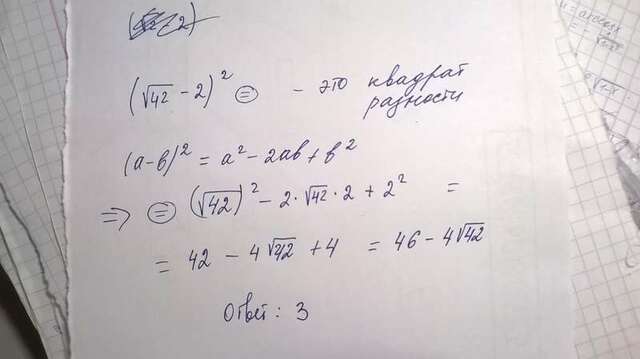 (√42 - 2)² = - это квадрат
разности
(a-b)² = a² - 2ab + b²
=> = (√42)² - 2·√42·2 + 2² =
= 42 - 4√42 + 4 = 46 - 4√42
Ответ: 3